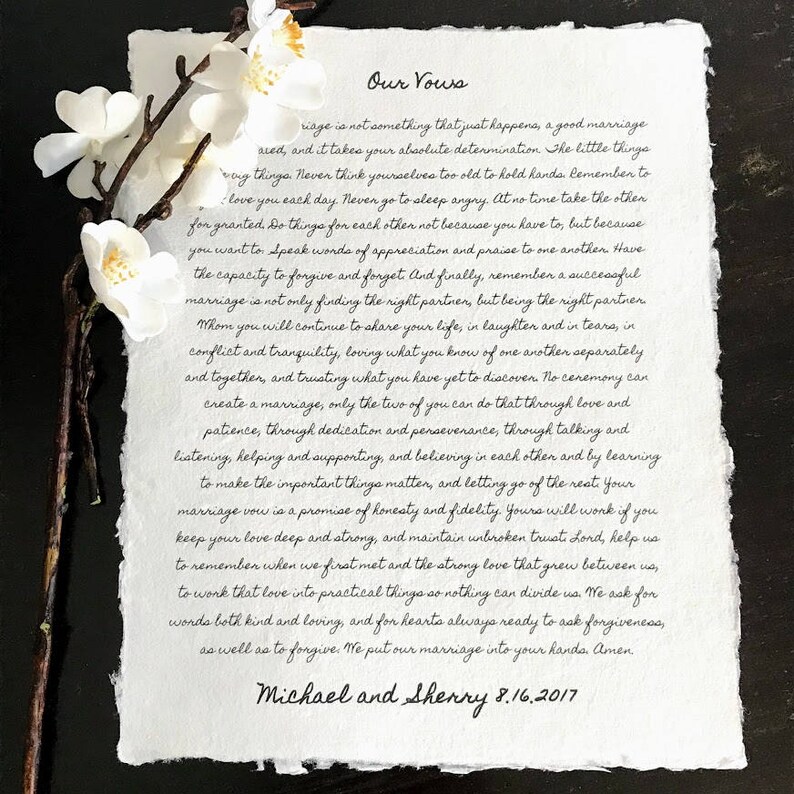 Our Vows
riage is not something that just happens, a good marriage
ated, and it takes your absolute determination. The little things
big things. Never think yourselves too old to hold hands. Remember to
love you each day. Never go to sleep angry. At no time take the other
for granted. Do things for each other not because you have to, but because
you want to. Speak words of appreciation and praise to one another. Have
the capacity to forgive and forget. And finally, remember a successful
marriage is not only finding the right partner, but being the right partner.
Whom you will continue to share your life, in laughter and in tears, in
conflict and tranquility, loving what you know of one another separately
and together, and trusting what you have yet to discover. No ceremony can
create a marriage, only the two of you can do that through love and
patience, through dedication and perseverance, through talking and
listening, helping and supporting, and believing in each other and by learning
to make the important things matter, and letting go of the rest. Your
marriage vow is a promise of honesty and fidelity. Yours will work if you
keep your love deep and strong, and maintain unbroken trust. Lord, help us
to remember when we first met and the strong love that grew between us,
to work that love into practical things so nothing can divide us. We ask for
words both kind and loving, and for hearts always ready to ask forgiveness,
as well as to forgive. We put our marriage into your hands. Amen.
Michael and Sherry 8.16.2017